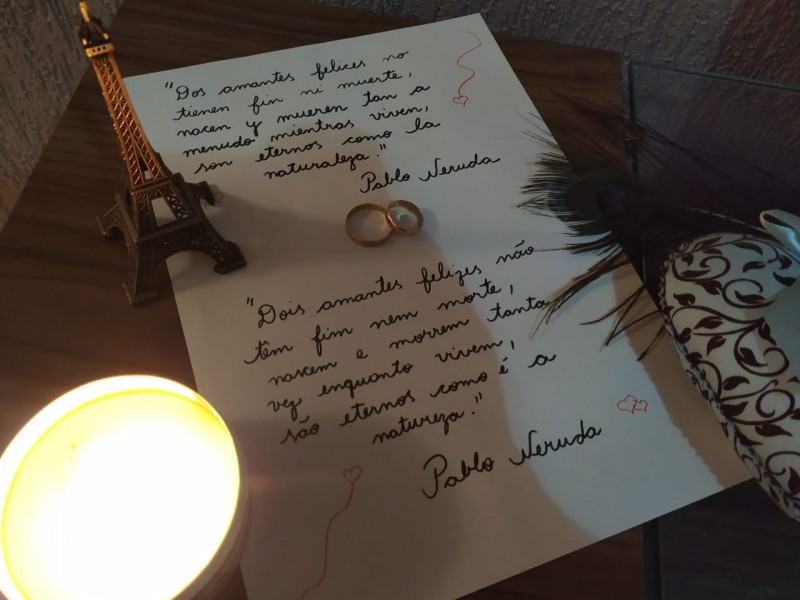 "Dos amantes felices no
tienen fin ni muerte,
nacen y mueren tan a
menudo mientras viven,
son eternos como la
naturaleza."
Pablo Neruda
"Dois amantes felizes não
têm fim nem morte,
nascem e morrem tanta
vez enquanto vivem,
são eternos como é a
natureza."
Pablo Neruda